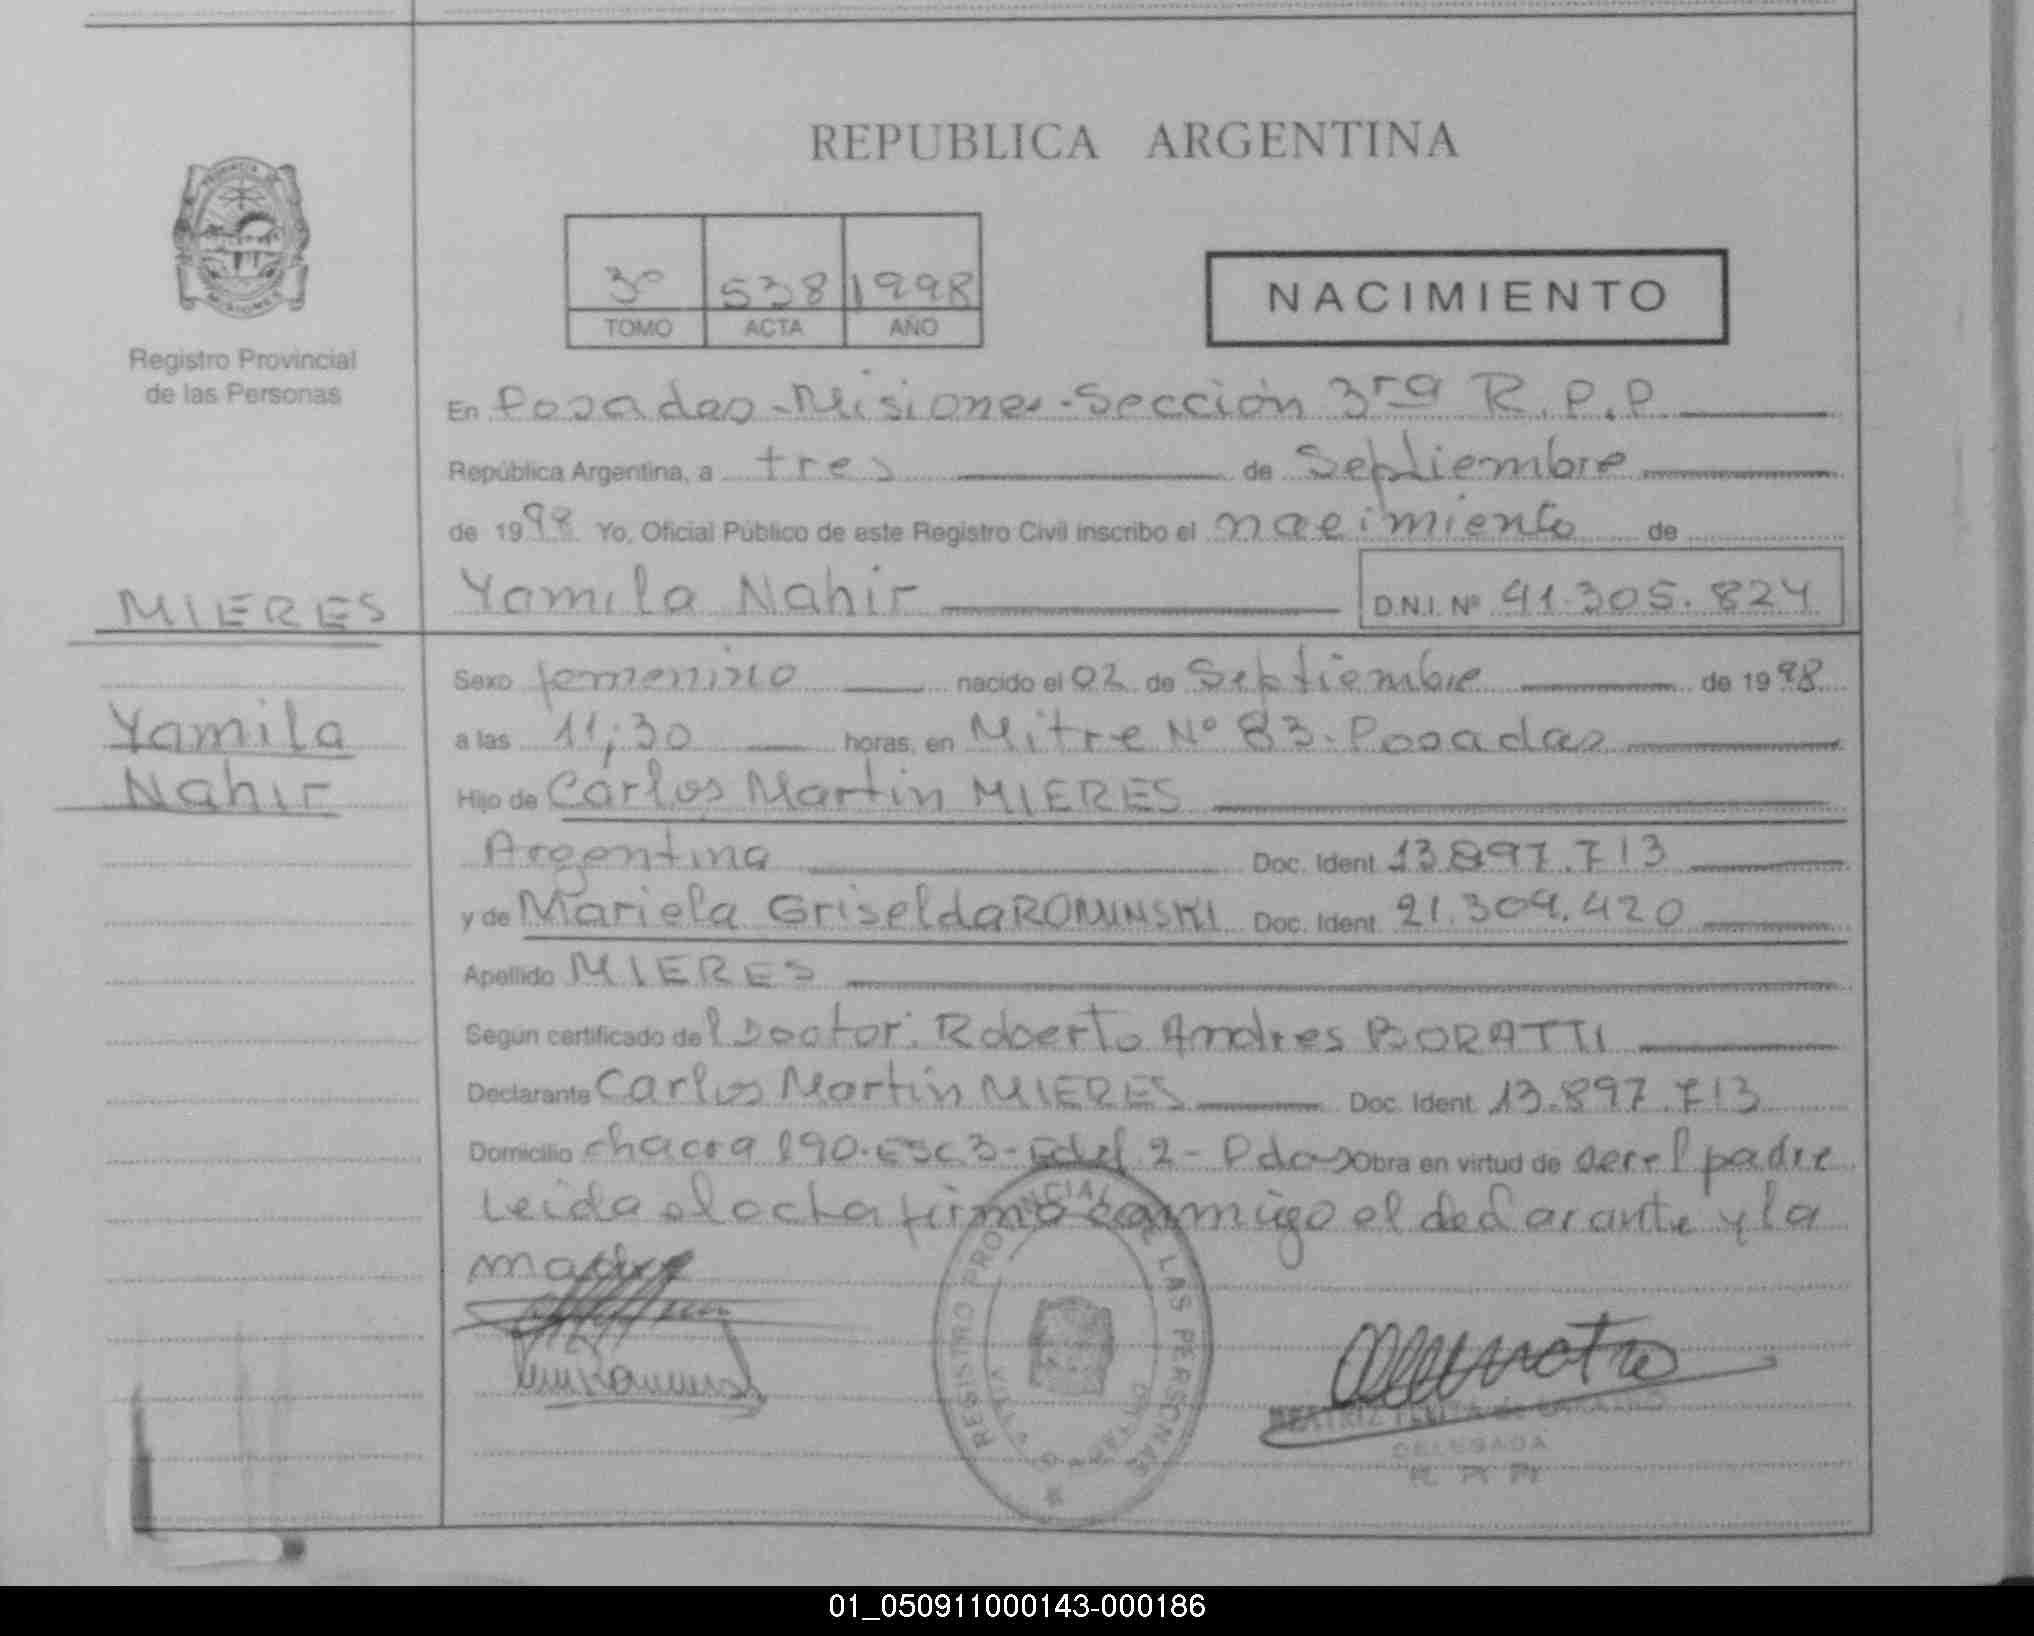 REPUBLICA ARGENTINA
PROVINCIA DE
MISIONES
Registro Provincial
de las Personas
3º 538 1998
TOMO ACTA AÑO
NACIMIENTO
En Posadas-Misiones-Sección 3ra R.P.P
República Argentina, a tres de Septiembre
de 1998 Yo, Oficial Público de este Registro Civil inscribo el nacimiento de
MIERES
Yamila Nahir D.N.I. Nº 41.305.824
Sexo femenino nacido el 02 de Septiembre de 1998
Yamila
a las 11;30 horas, en Mitre Nº 83-Posadas
Nahir
Hijo de Carlos Martin MIERES
Argentina Doc. Ident. 13.897.713
y de Mariela Griselda ROMINSKI Doc. Ident. 21.309.420
Apellido MIERES
Según certificado del Doctor: Roberto Andres BORATTI
Declarante Carlos Martin MIERES Doc. Ident. 13.897.713
Domicilio chacra 190-Esc 3-Edif. 2-Pdas Obra en virtud de ser el padre
Leida el acta firma conmigo el declarante y la
madre
REGISTRO PROVINCIAL DE LAS PERSONAS
BEATRIZ
DELEGADA
01_050911000143-000186